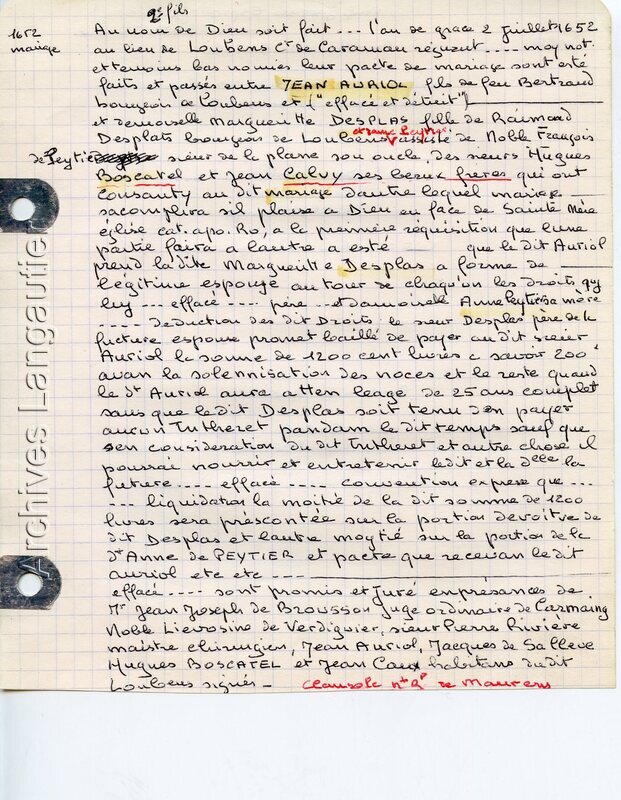 2e fils
1652
mariage
Au nom de Dieu soit fait .... l'an de grace 2 juillet 1652
au lieu de Loubens Ct de Caraman régnent .... moy not.
et temoins bas només leur pacte de mariage sont esté
faits et passés entre JEAN AURIOL fils de feu Bertrand
bourgeois de Loubens et ("effacé et détruit")
et demoiselle Marguerithe DESPLAS fille de Raimond
Desplats bourgeois de Loubens et anne Peytier assisté de Noble François
de Peytier sieur de la plane son oncle, des sieurs Hugues
Boscatel et Jean Calvy ses beaux freres qui ont
consanty au dit mariage dautre loquel mariage
sacomplira sil plaise a Dieu en face de Sainte Mère
église cat. apo. Ro, a la première réquisition que lune
partie faira a lautre a esté que le dit Auriol
prend la dite Marguerithe Desplas a forme de
legitime espouze au tour de chaqu'un les droits quy
luy ... effacé .... père et damoiselle Anne Peytier sa mère
.... deduction des dit Droits le sieur Desplas père de la
future espouse promet baillé de payer au dit sieur
Auriol la somme de 1200 cent livres a savoir 200
avan la solemnisation des noces et le reste quand
le dt Auriol aura atten leage de 25 ans complet
sans que le dit Desplas soit tenu den payer
aucun Intheret pandam le dit temps sauf que
sen consideration du dit Intheret et autre chose il
pourrai nourrir et entretenir ledit et la delle la
future .... effacé .... convention exprese que ...
... liquidation la moitié de la dit somme de 1200
livres sera prescontée sur la portion devoitve de
dit Desplas et lautre moytié sur la portion de la
dt Anne de PEYTIER et pacte que recevan le dit
auriol etc etc ...
effacé .... sont promis et Juré en presances de
Mr Jean Joseph de Brousson Juge ordinaire de Carmaing
Noble Lievosine de Verdiguier, sieur Pierre Rivière
maistre chirurgien, Jean Auriol, Jacques de Salleve
Hugues BOSCATEL et Jean Caux habitans dudit
Loubens signés - Clausolc nre Rl de Maurens
Archives Langautier